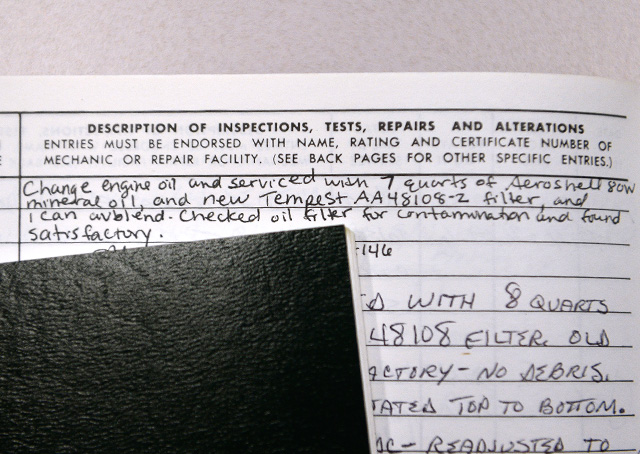 DESCRIPTION OF INSPECTIONS, TESTS, REPAIRS AND ALTERATIONS
ENTRIES MUST BE ENDORSED WITH NAME, RATING AND CERTIFICATE NUMBER OF
MECHANIC OR REPAIR FACILITY. (SEE BACK PAGES FOR OTHER SPECIFIC ENTRIES.)
Change engine oil and serviced with 7 quarts of Aeroshell 80W
mineral oil, and new Tempest AA48108-2 filter, and
1 can avblend. Checked oil filter for contamination and found
satisfactory.
-146
WITH 8 QUARTS
48108 FILTER. OLD
ACTORY - NO DEBRIS.
TATED TOP TO BOTTOM.
- READJUSTED TO